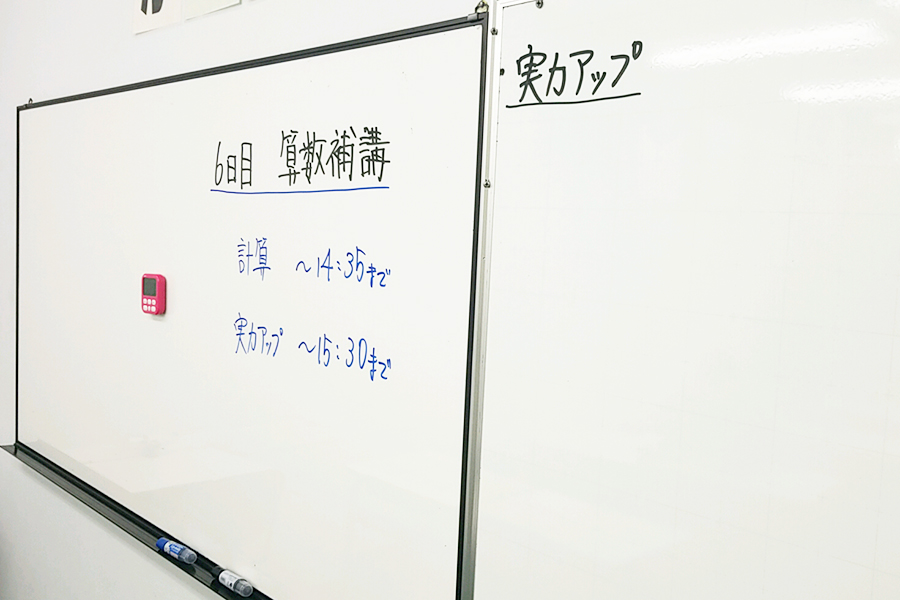 6日目 算数補講
計算 ~14:35まで
実力アップ ~15:30まで
実力アップ